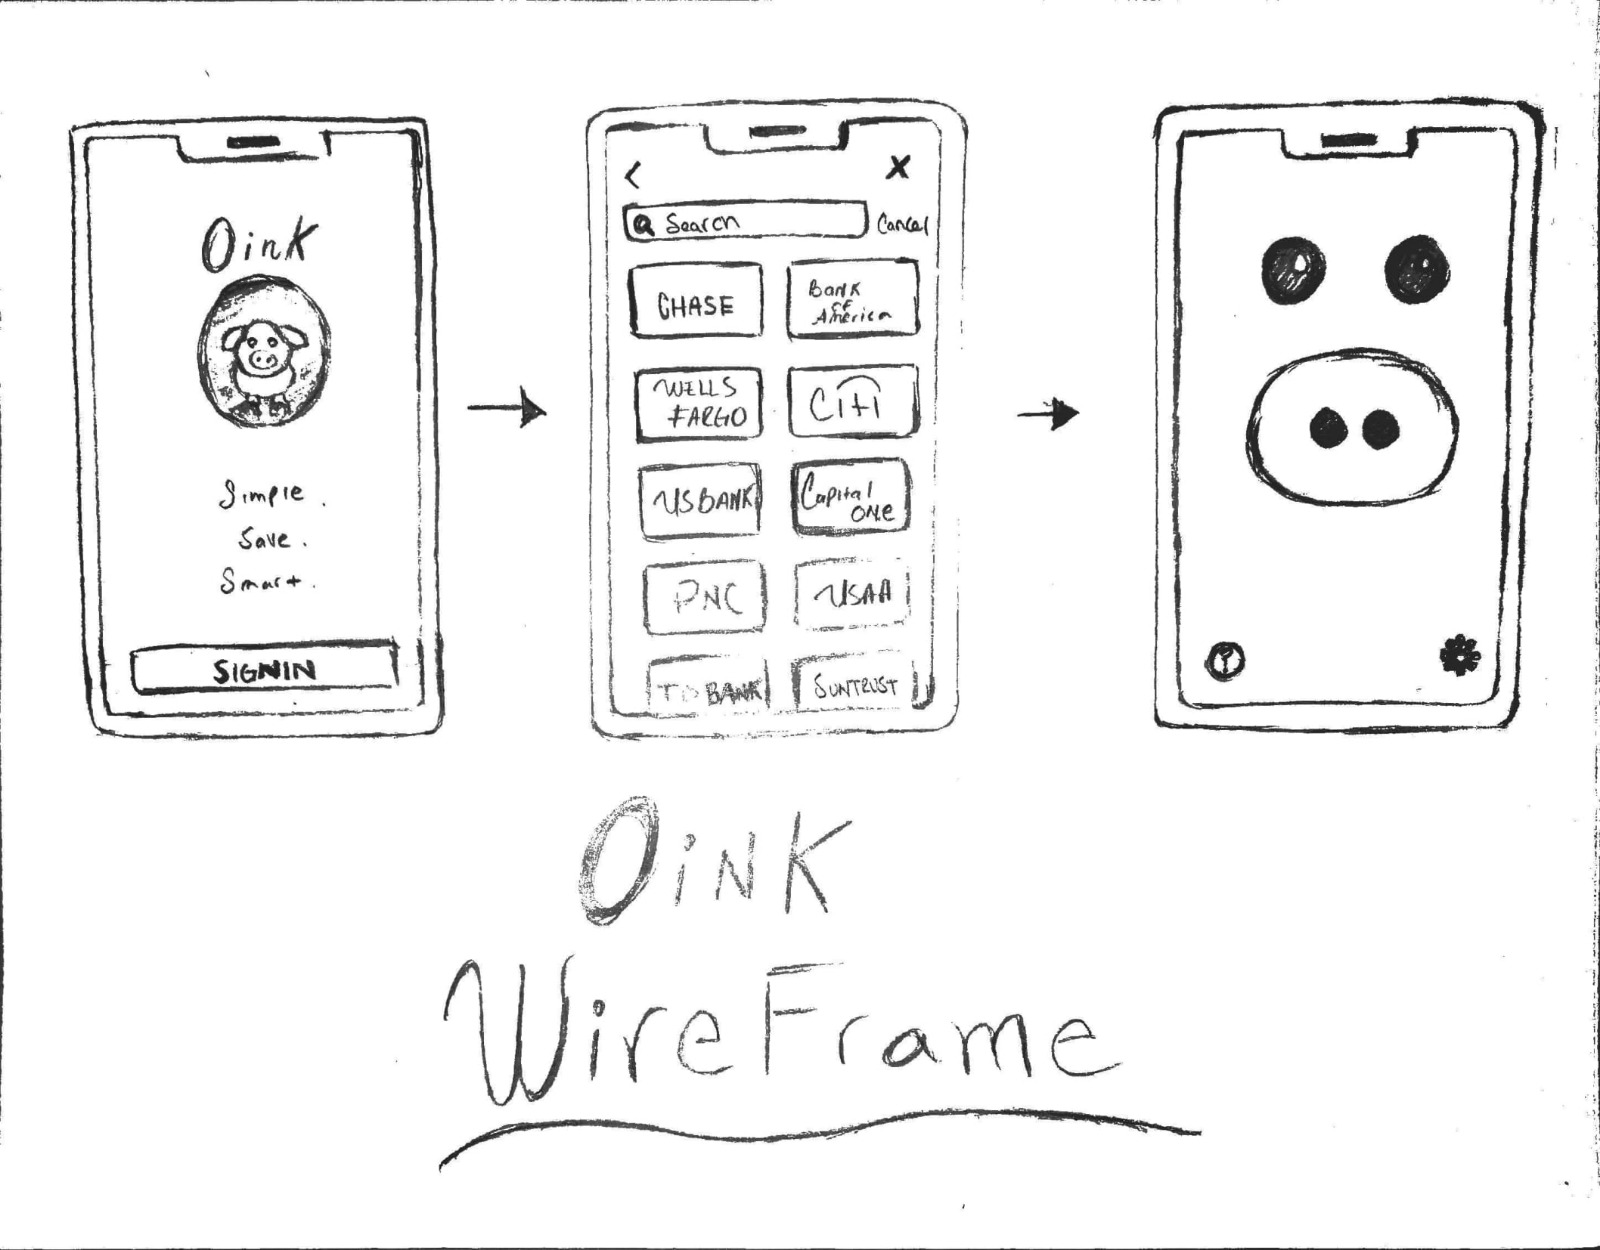 Oink
Simple.
Save.
Smart.
SIGNIN
< X
Search Cancel
CHASE
Bank
of
America
WELLS
FARGO
Citi
US BANK
Capital
One
PNC
USAA
TD BANK
SUNTRUST
?
Oink
WireFrame